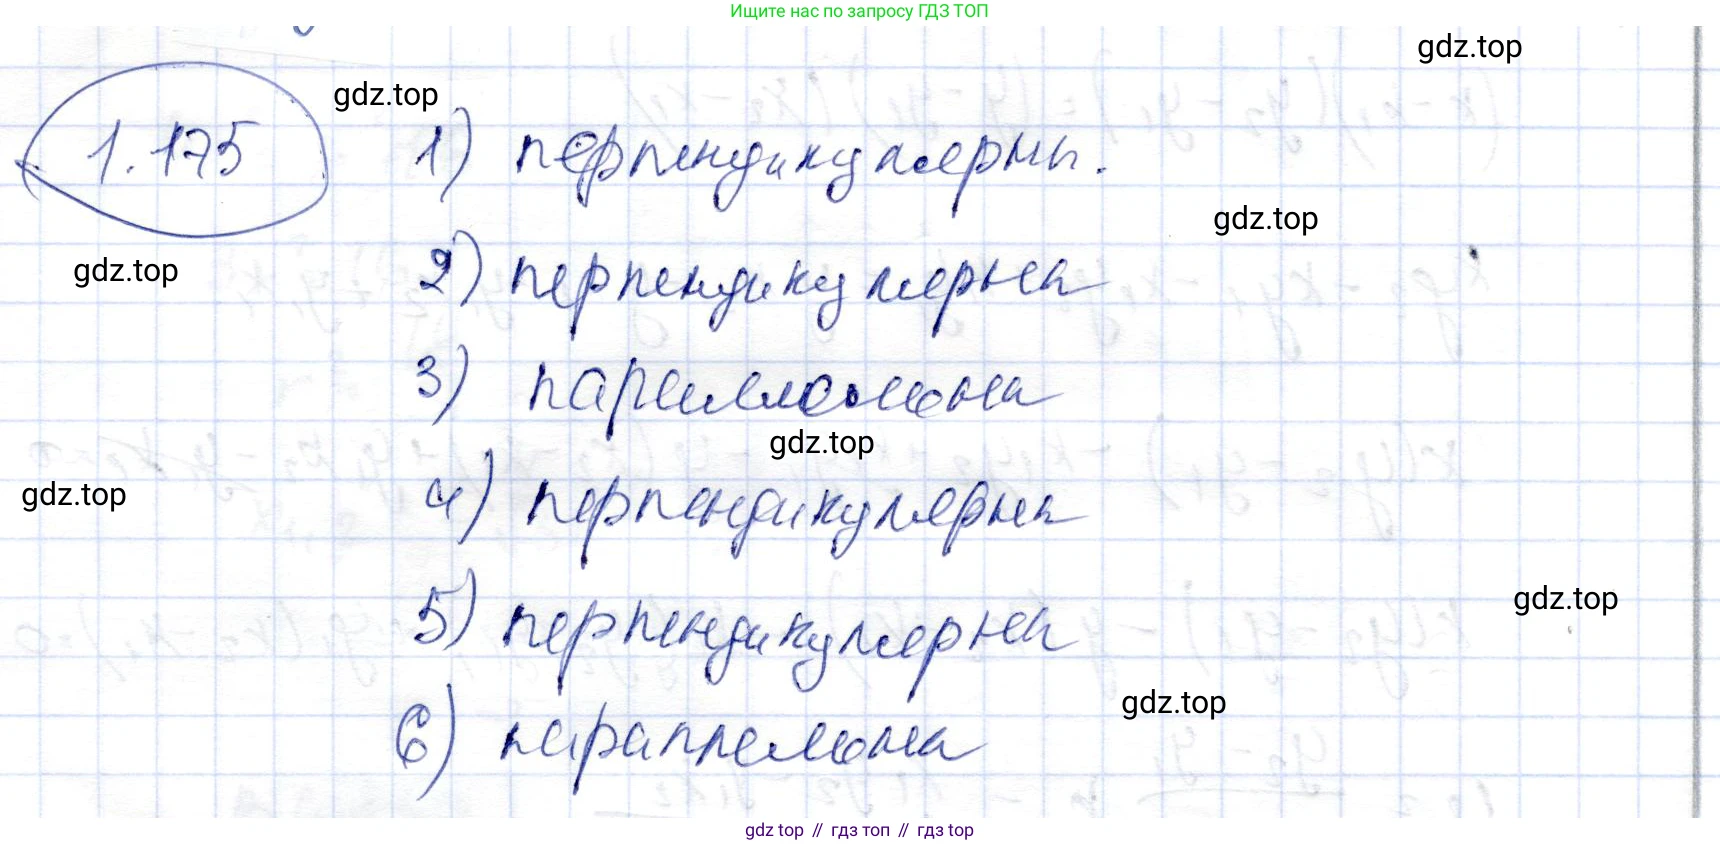 Ищите нас по запросу ГДЗ ТОП
gdz.top
gdz.top
1.175 1) перпендикулярны.
gdz.top
gdz.top
2) перпендикулярны
3) параллельны
gdz.top
gdz.top
4) перпендикулярны
gdz.top
5) перпендикулярны
gdz.top
6) параллельны
gdz top // гдз топ // gdz top